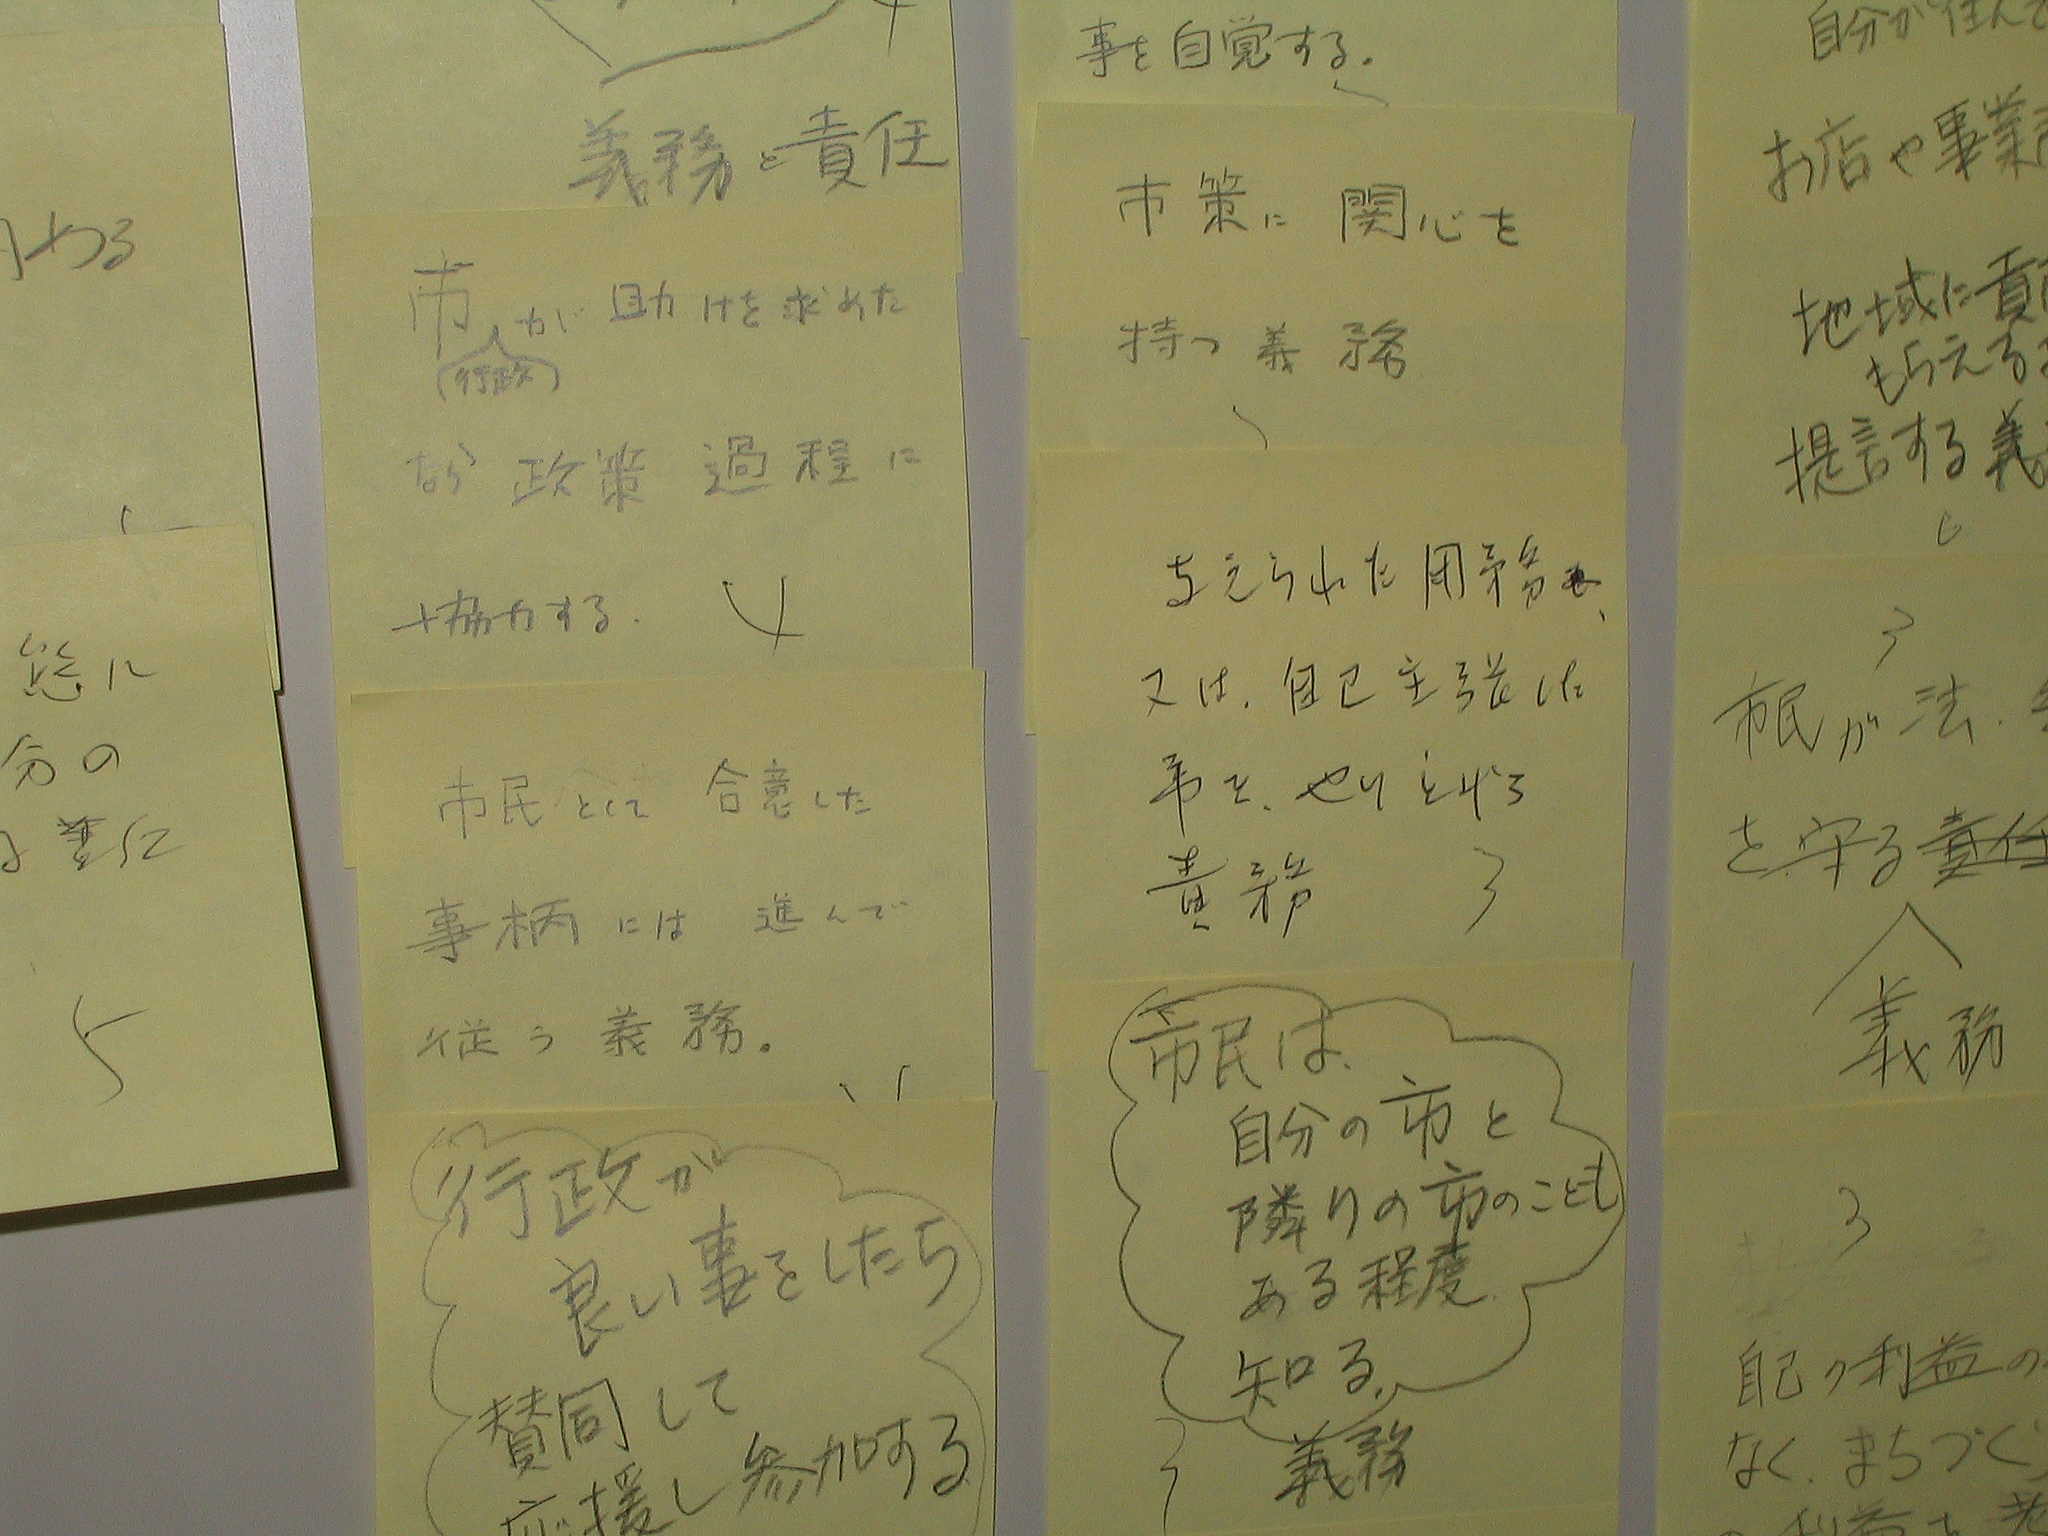 わる
態に
分の
5
義務と責任
市が助けを求めた
(行政)
なら政策過程に
協力する. 4
市民として合意した
事柄には進んで
従う義務。
行政が
良い事をしたら
賛同して
応援し参加する
事を自覚する.
市策に関心を
持つ義務
支えられた用務
又は.自己主張した
事を、やりとげる
責務 3
市民は、
自分の市と
隣りの市のことも
ある程度
知る.
3 義務
自分が住んで
お店や事業
地域に貢
もらえる
提言する義
3
市民が法.
を守る責任
義務
3
自己の利益の
なく.まちづくり